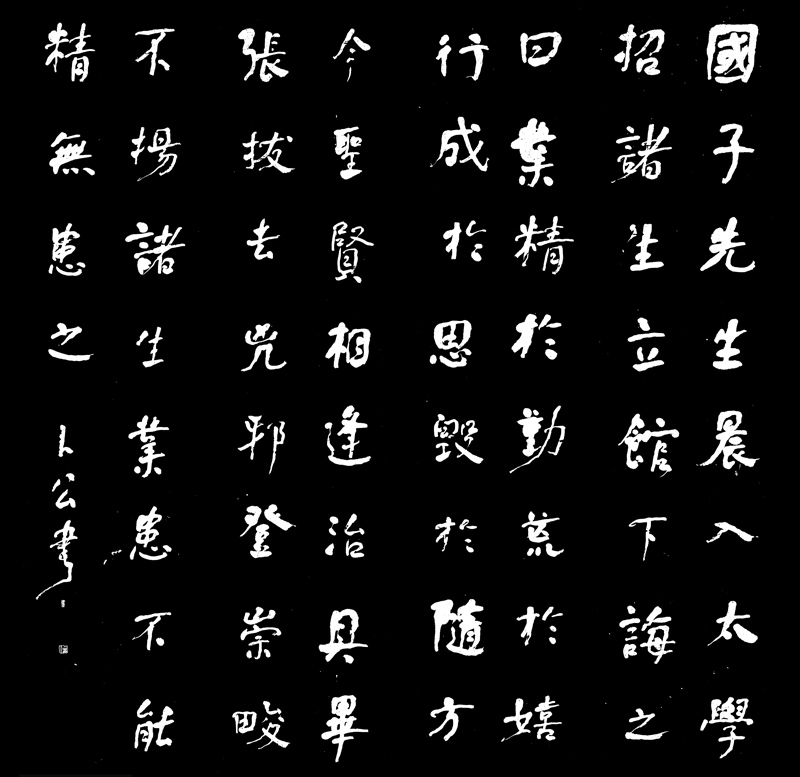 國子先生晨入太學
招諸生立館下誨之
曰業精於勤荒於嬉
行成於思毀於隨方
今聖賢相逢治具畢
張拔去兇邪登崇畯
不揚諸生業患不能
精無患之 卜公書